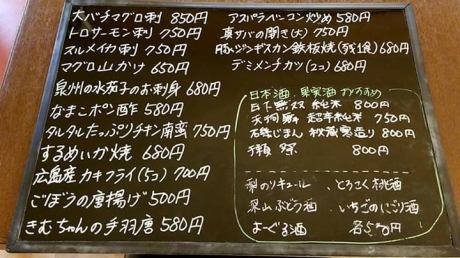 大バチマグロ刺 850円
トロサーモン刺 750円
スルメイカ刺 750円
マグロ山かけ 650円
泉州の水茄子のお刺身 680円
なまこポン酢 580円
タルタルたっぷりチキン南蛮 750円
するめいか焼 680円
広島産カキフライ(5コ) 700円
ごぼうの唐揚げ 500円
きむちゃんの手羽唐 580円
アスパラベーコン炒め 580円
真サバの開き(大) 750円
豚ジンギスカン鉄板焼(残1食) 680円
デミメンチカツ(2コ) 680円
日本酒、果実酒 おすすめ
日下無双 純米 800円
天狗舞 超辛純米 750円
石鎚 800円
獺祭 800円
梨のリキュール、とろこく桃酒
山ぶどう酒 いちごのにごり酒
よーぐる酒 各550円